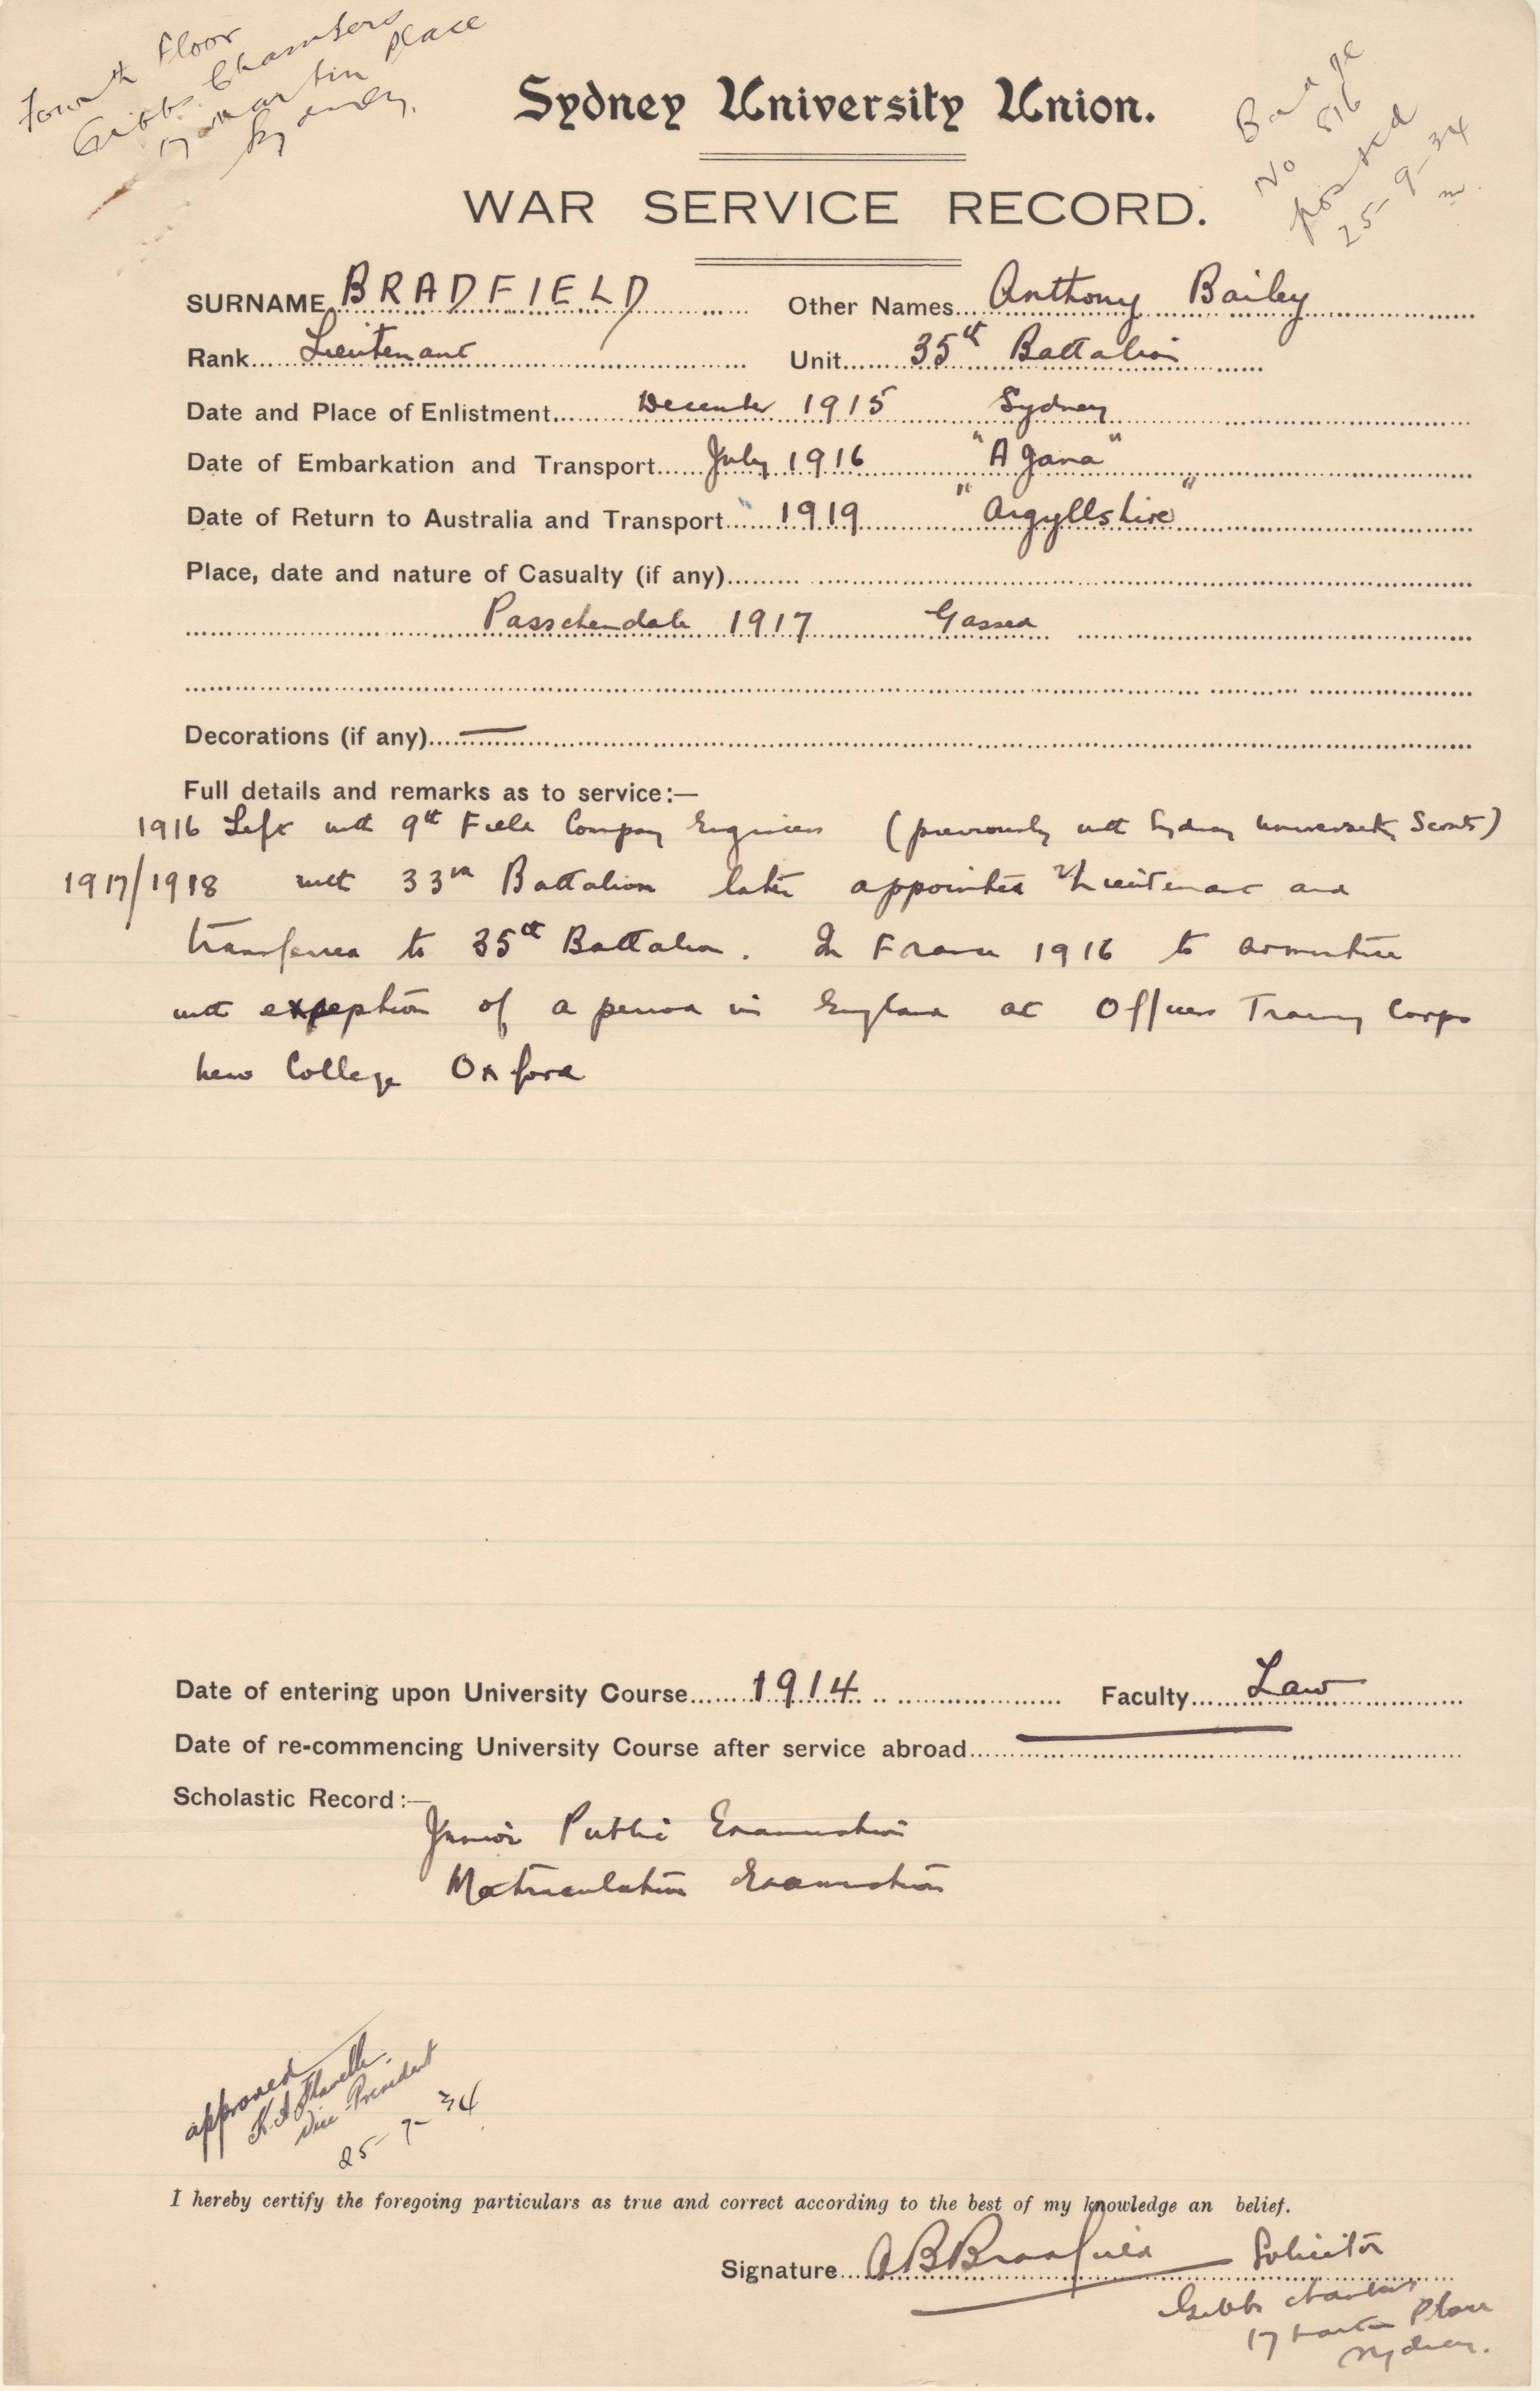 Fourth Floor
Gibbs Chambers
17 Martin Place
Sydney.
Badge
No 816
posted
25-9-34
Sydney University Union.
WAR SERVICE RECORD.
SURNAME BRADFIELD Other Names Anthony Bailey
Rank Lieutenant Unit 35th Battalion
Date and Place of Enlistment December 1915 Sydney
Date of Embarkation and Transport July 1916 "Ajana"
Date of Return to Australia and Transport " 1919 "Argyllshire"
Place, date and nature of Casualty (if any)
Passchendale 1917 Gassed
Decorations (if any) —
Full details and remarks as to service:—
1916 Left with 9th Field Company Engineers (previously with Sydney University Scouts)
1917/1918 with 33rd Battalion later appointed 2/Lieutenant and
transferred to 35th Battalion. In France 1916 to armistice
with exception of a period in England at Officers Training Corps
New College Oxford
Date of entering upon University Course 1914 Faculty Law
Date of re-commencing University Course after service abroad —
Scholastic Record:—
Junior Public Examination
Matriculation Examination
approved
Vice President
25-9-34
I hereby certify the foregoing particulars as true and correct according to the best of my knowledge an belief.
Signature A B Bradfield Solicitor
Gibbs Chambers
17 Martin Place
Sydney.